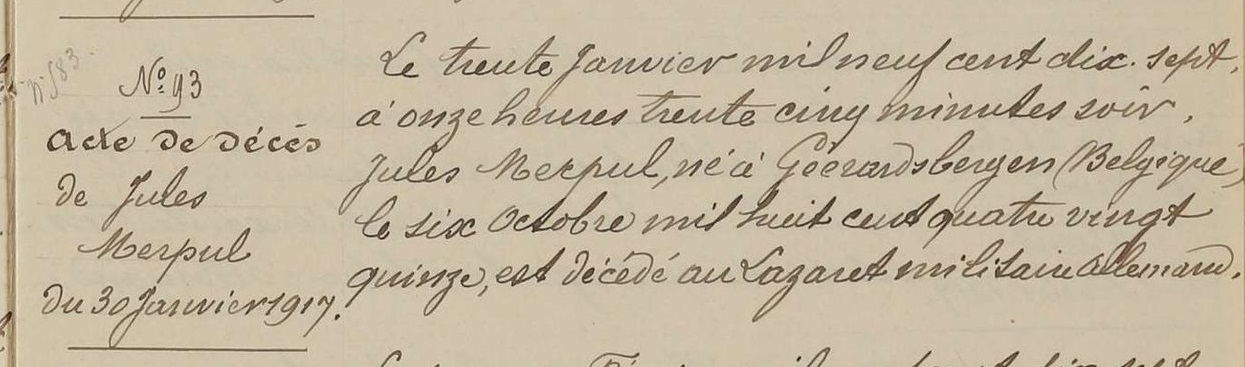 N° 583
N° 93
Acte de décès
de Jules
Merpul
du 30 Janvier 1917.
Le trente Janvier mil neuf cent dix-sept,
à onze heures trente cinq minutes soir,
Jules Merpul, né à Géerardsbergen (Belgique)
le six Octobre mil huit cent quatre vingt
quinze, est décédé au Lazaret militaire allemand.